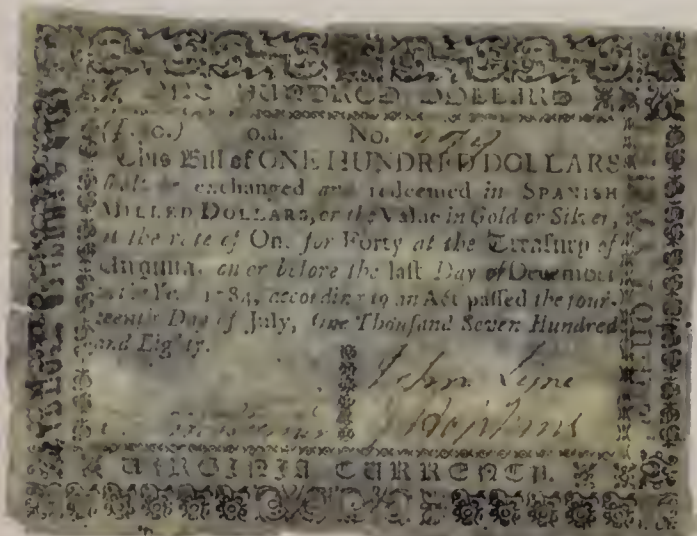 ONE HUNDRED DOLLARS
No.
This Bill of ONE HUNDRED DOLLARS
shall be exchanged and redeemed in SPANISH
MILLED DOLLARS, or the Value in Gold or Silver,
at the rate of One for Forty at the Treasury of
Virginia, on or before the last Day of December
in the Year 1784, according to an Act passed the four-
teenth Day of July, One Thousand Seven Hundred
and Eighty.
John Lyne
J Hopkins
VIRGINIA CURRENCY.